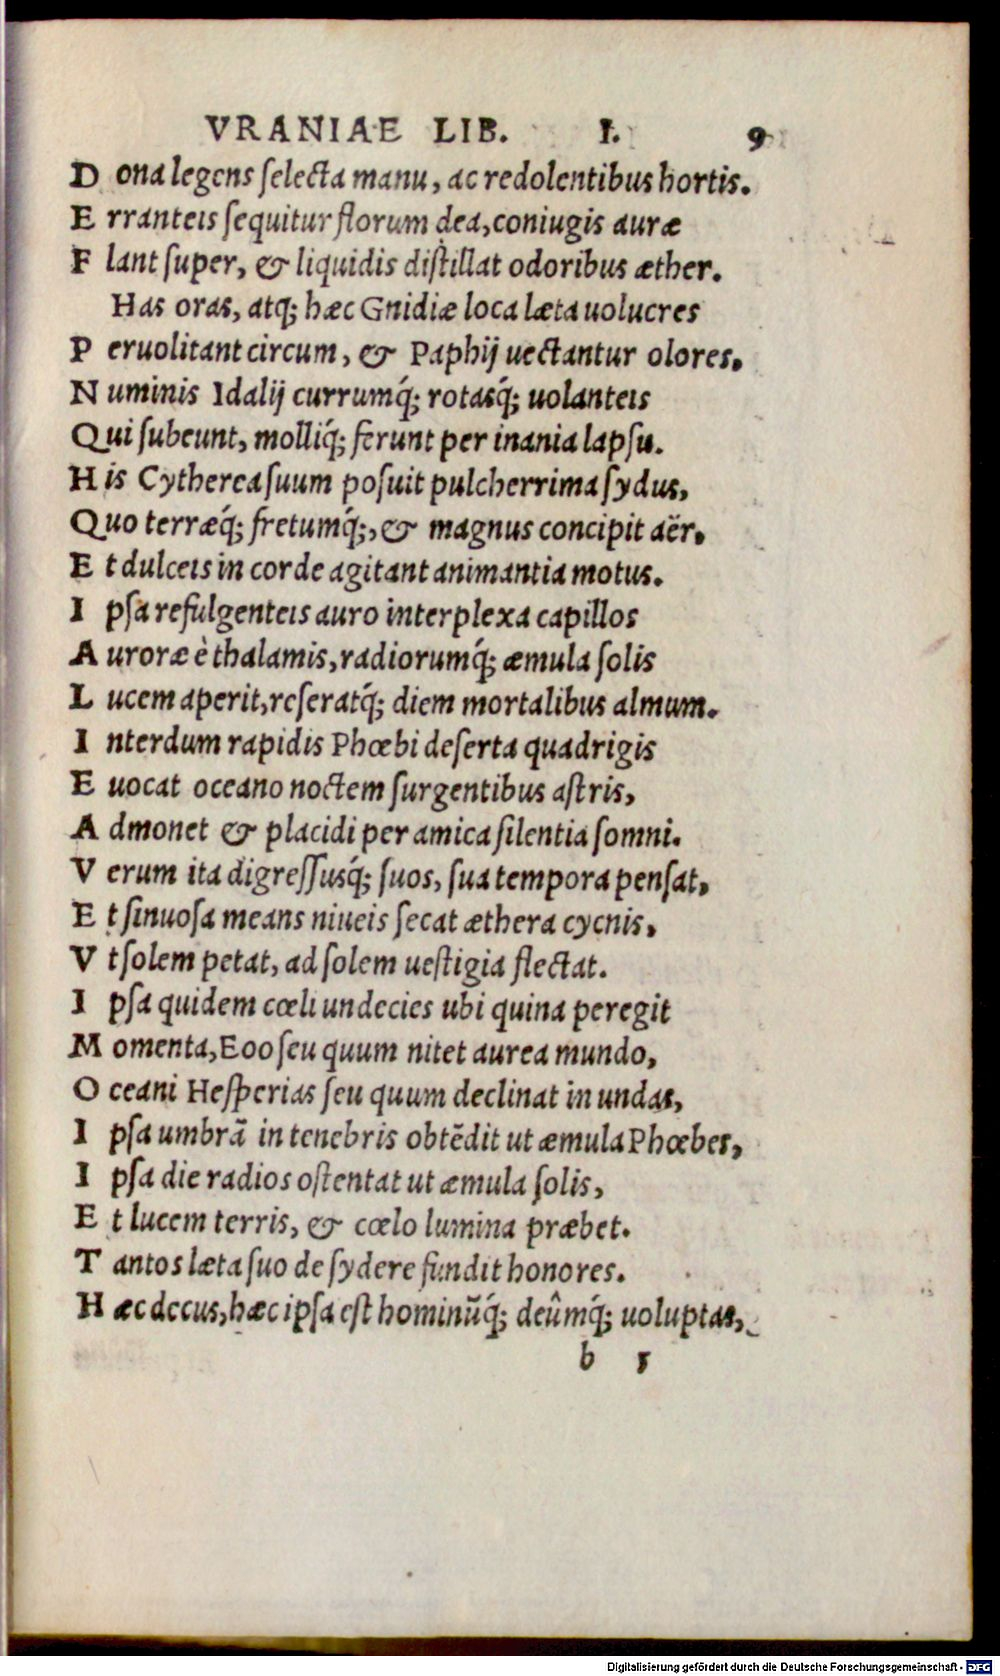 VRANIAE LIB. I. 9
D ona legens ſelecta manu, ac redolentibus hortis.
E rranteis ſequitur florum dea, coniugis auræ
F lant ſuper, & liquidis diſtillat odoribus æther.
Has oras, atq; hæc Gnidiæ loca læta uolucres
P eruolitant circum, & Paphij uectantur olores.
N uminis Idalij currumq́; rotasq́; uolanteis
Qui ſubeunt, molliq́; ferunt per inania lapſu.
H is Cytherea ſuum poſuit pulcherrima ſydus,
Quo terræq́; fretumq́;, & magnus concipit aër.
E t dulceis in corde agitant animantia motus.
I pſa refulgenteis auro interplexa capillos
A uroræ è thalamis, radiorumq́; æmula ſolis
L ucem aperit, reſeratq́; diem mortalibus almum.
I nterdum rapidis Phœbi deſerta quadrigis
E uocat oceano noctem ſurgentibus aſtris,
A dmonet & placidi per amica ſilentia ſomni.
V erum ita digreſſusq́; ſuos, ſua tempora penſat,
E t ſinuoſa means niueis ſecat æthera cycnis,
V t ſolem petat, ad ſolem ueſtigia flectat.
I pſa quidem cœli undecies ubi quina peregit
M omenta, Eoo ſeu quum nitet aurea mundo,
O ceani Heſperias ſeu quum declinat in undas,
I pſa umbrā in tenebris obtēdit ut æmula Phœbes,
I pſa die radios oſtentat ut æmula ſolis,
E t lucem terris, & cœlo lumina præbet.
T antos læta ſuo de ſydere fundit honores.
H æc decus, hæc ipſa eſt hominūq́; deûmq́; uoluptas,
b 5
Digitalisierung gefördert durch die Deutsche Forschungsgemeinschaft - DFG